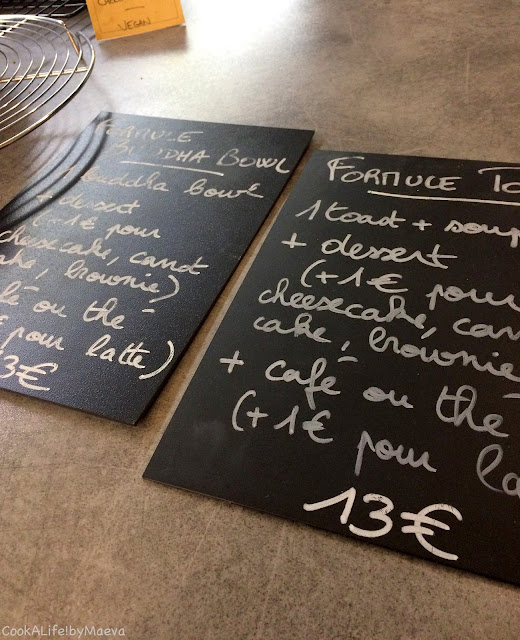 VEGAN
FORMULE
BUDDHA BOWL
1 buddha bowl
+ dessert
(+1€ pour
cheesecake, carrot
cake, brownie)
café ou thé
€ pour latte)
3€
FORMULE TO
1 toast + soup
+ dessert
(+1€ pour
cheesecake, car
cake, brownie
+ café ou thé
(+1€ pour la
13€
CookALife!byMaeva